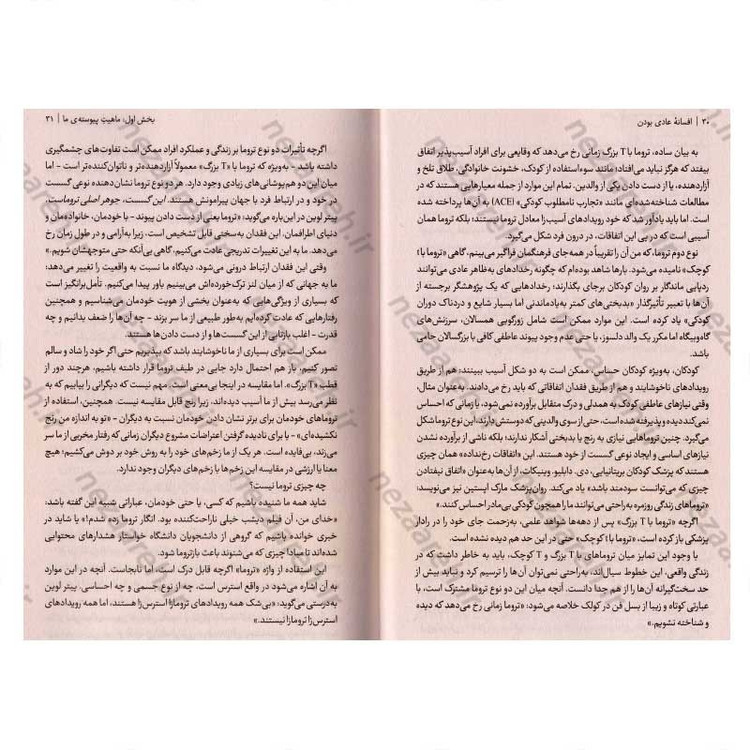 ۳۰ | افسانهٔ عادی بودن
به بیان ساده، تروما با T بزرگ زمانی رخ می‌دهد که وقایعی برای افراد آسیب‌پذیر اتفاق
بیفتد که هرگز نباید می‌افتاد؛ مانند سوءاستفاده از کودک، خشونت خانوادگی، طلاق تلخ و
آزاردهنده، یا از دست دادن یکی از والدین. تمام این موارد از جمله معیارهایی هستند که در
مطالعات شناخته‌شده‌ای مانند «تجارب نامطلوب کودکی» (ACE) به آن‌ها پرداخته شده
است. اما باید یادآور شد که خود رویدادهای آسیب‌زا معادل تروما نیستند؛ بلکه تروما همان
آسیبی است که در پی این اتفاقات، در درون فرد شکل می‌گیرد.
نوع دوم تروما، که من آن را تقریباً در همه‌جای فرهنگمان فراگیر می‌بینم، گاهی «تروما با t
کوچک» نامیده می‌شود. بارها شاهد بوده‌ام که چگونه رخدادهای به‌ظاهر عادی می‌توانند
ردپایی ماندگار بر روان کودکان برجای بگذارند؛ رخدادهایی که یک پژوهشگر برجسته از
آن‌ها با تعبیر تأثیرگذار «بدبختی‌های کمتر به‌یادماندنی اما بسیار شایع و دردناک دوران
کودکی» یاد کرده است. این موارد ممکن است شامل زورگویی همسالان، سرزنش‌های
گاه‌وبیگاه اما مکرر یک والد دلسوز، یا حتی عدم وجود پیوند عاطفی کافی با بزرگسالان حامی
باشد.
کودکان، به‌ویژه کودکان حساس، ممکن است به دو شکل آسیب ببینند؛ هم از طریق
رویدادهای ناخوشایند و هم از طریق فقدان اتفاقاتی که باید رخ می‌دادند. به‌عنوان مثال،
وقتی نیازهای عاطفی کودک به همدلی و درک متقابل برآورده نمی‌شود، یا زمانی که احساس
نمی‌کند دیده و پذیرفته شده است، حتی از سوی والدینی که دوستش دارند، این نوع تروما شکل
می‌گیرد. چنین تروماهایی نیازی به رنج یا بدبختی آشکار ندارند؛ بلکه ناشی از برآورده نشدن
نیازهای اساسی و ایجاد نوعی گسست از خود هستند. این «اتفاقات رخ‌نداده» همان چیزی
هستند که پزشک کودکان بریتانیایی، دی. دابلیو. وینیکات، از آن‌ها به‌عنوان «اتفاق نیفتادن
چیزی که می‌توانست سودمند باشد» یاد می‌کند. روان‌پزشک مارک اپستین نیز می‌نویسد:
«تروماهای زندگی روزمره به‌راحتی می‌توانند ما را همچون کودکی بی‌مادر احساس کنند.»
اگرچه «تروما با T بزرگ» پس از دهه‌ها شواهد علمی، به‌زحمت جای خود را در رادار
پزشکی باز کرده است، «تروما با t کوچک» حتی در این حد هم دیده نشده است.
با وجود این تمایز میان تروماهای با T بزرگ و T کوچک، باید به خاطر داشت که در
زندگی واقعی، این خطوط سیال‌اند، به‌راحتی نمی‌توان آن‌ها را ترسیم کرد و نباید بیش از
حد سخت‌گیرانه آن‌ها را از هم جدا دانست. آنچه میان این دو نوع تروما مشترک است، با
عبارتی کوتاه و زیبا از بسل فن در کولک خلاصه می‌شود: «تروما زمانی رخ می‌دهد که دیده
و شناخته نشویم.»
بخش اول: ماهیتِ پیوسته‌ی ما | ۳۱
اگرچه تأثیرات دو نوع تروما بر زندگی و عملکرد افراد ممکن است تفاوت‌های چشمگیری
داشته باشد - به‌ویژه که تروما با «T بزرگ» معمولاً آزاردهنده‌تر و ناتوان‌کننده‌تر است - اما
میان این دو هم‌پوشانی‌های زیادی وجود دارد. هر دو نوع تروما نشان‌دهنده نوعی گسست
در خود و در ارتباط فرد با جهان پیرامونش هستند. این گسست، جوهر اصلی تروماست.
پیتر لوین در این‌باره می‌گوید: «تروما یعنی از دست دادن پیوند - با خودمان، خانواده‌مان و
دنیای اطرافمان. این فقدان به‌سختی قابل تشخیص است، زیرا به‌آرامی و در طول زمان رخ
می‌دهد. ما به این تغییرات تدریجی عادت می‌کنیم، گاهی بی‌آنکه حتی متوجهشان شویم.»
وقتی این فقدان ارتباط درونی می‌شود، دیدگاه ما نسبت به واقعیت را تغییر می‌دهد؛
ما به جهانی که از میان لنز ترک‌خورده‌اش می‌بینیم باور پیدا می‌کنیم. تأمل‌برانگیز است
که بسیاری از ویژگی‌هایی که به‌عنوان بخشی از هویت خودمان می‌شناسیم و همچنین
رفتارهایی که عادت کرده‌ایم به‌طور طبیعی از ما سر بزند - چه آن‌ها را ضعف بدانیم و چه
قدرت - اغلب بازتابی از این گسست‌ها و از دست دادن‌ها هستند.
ممکن است برای بسیاری از ما ناخوشایند باشد که بپذیریم حتی اگر خود را شاد و سالم
تصور کنیم، باز هم احتمال دارد جایی در طیف تروما قرار داشته باشیم، هرچند دور از
قطب «T بزرگ». اما مقایسه در اینجا بی‌معنی است. مهم نیست که دیگرانی را بیابیم که به
نظر می‌رسد بیش از ما آسیب دیده‌اند، زیرا رنج قابل مقایسه نیست. همچنین، استفاده از
تروماهای خودمان برای برتر نشان دادن خودمان نسبت به دیگران - «تو به اندازه من رنج
نکشیده‌ای» - یا برای نادیده گرفتن اعتراضات مشروع دیگران زمانی که رفتار مخربی از ما سر
می‌زند، بی‌فایده است. هر یک از ما زخم‌های خود را به روش خود بر دوش می‌کشیم؛ هیچ
معنا یا ارزشی در مقایسه این زخم‌ها با زخم‌های دیگران وجود ندارد.
چه چیزی تروما نیست؟
شاید همه ما شنیده باشیم که کسی، یا حتی خودمان، عباراتی شبیه این گفته باشد:
«خدای من، آن فیلم دیشب خیلی ناراحت‌کننده بود. انگار تروما زده شدم!» یا شاید در
خبری خوانده باشیم که گروهی از دانشجویان دانشگاه خواستار هشدارهای محتوایی
شده‌اند تا مبادا چیزی که می‌شنوند باعث بازتروما شود.
این استفاده از واژه «تروما» اگرچه قابل درک است، اما نابجاست. آنچه در این موارد
به آن اشاره می‌شود در واقع استرس است، چه از نوع جسمی و چه احساسی. پیتر لوین
به‌درستی می‌گوید: «بی‌شک همه رویدادهای ترومازا استرس‌زا هستند، اما همه رویدادهای
استرس‌زا ترومازا نیستند.»
nezaareh.ir